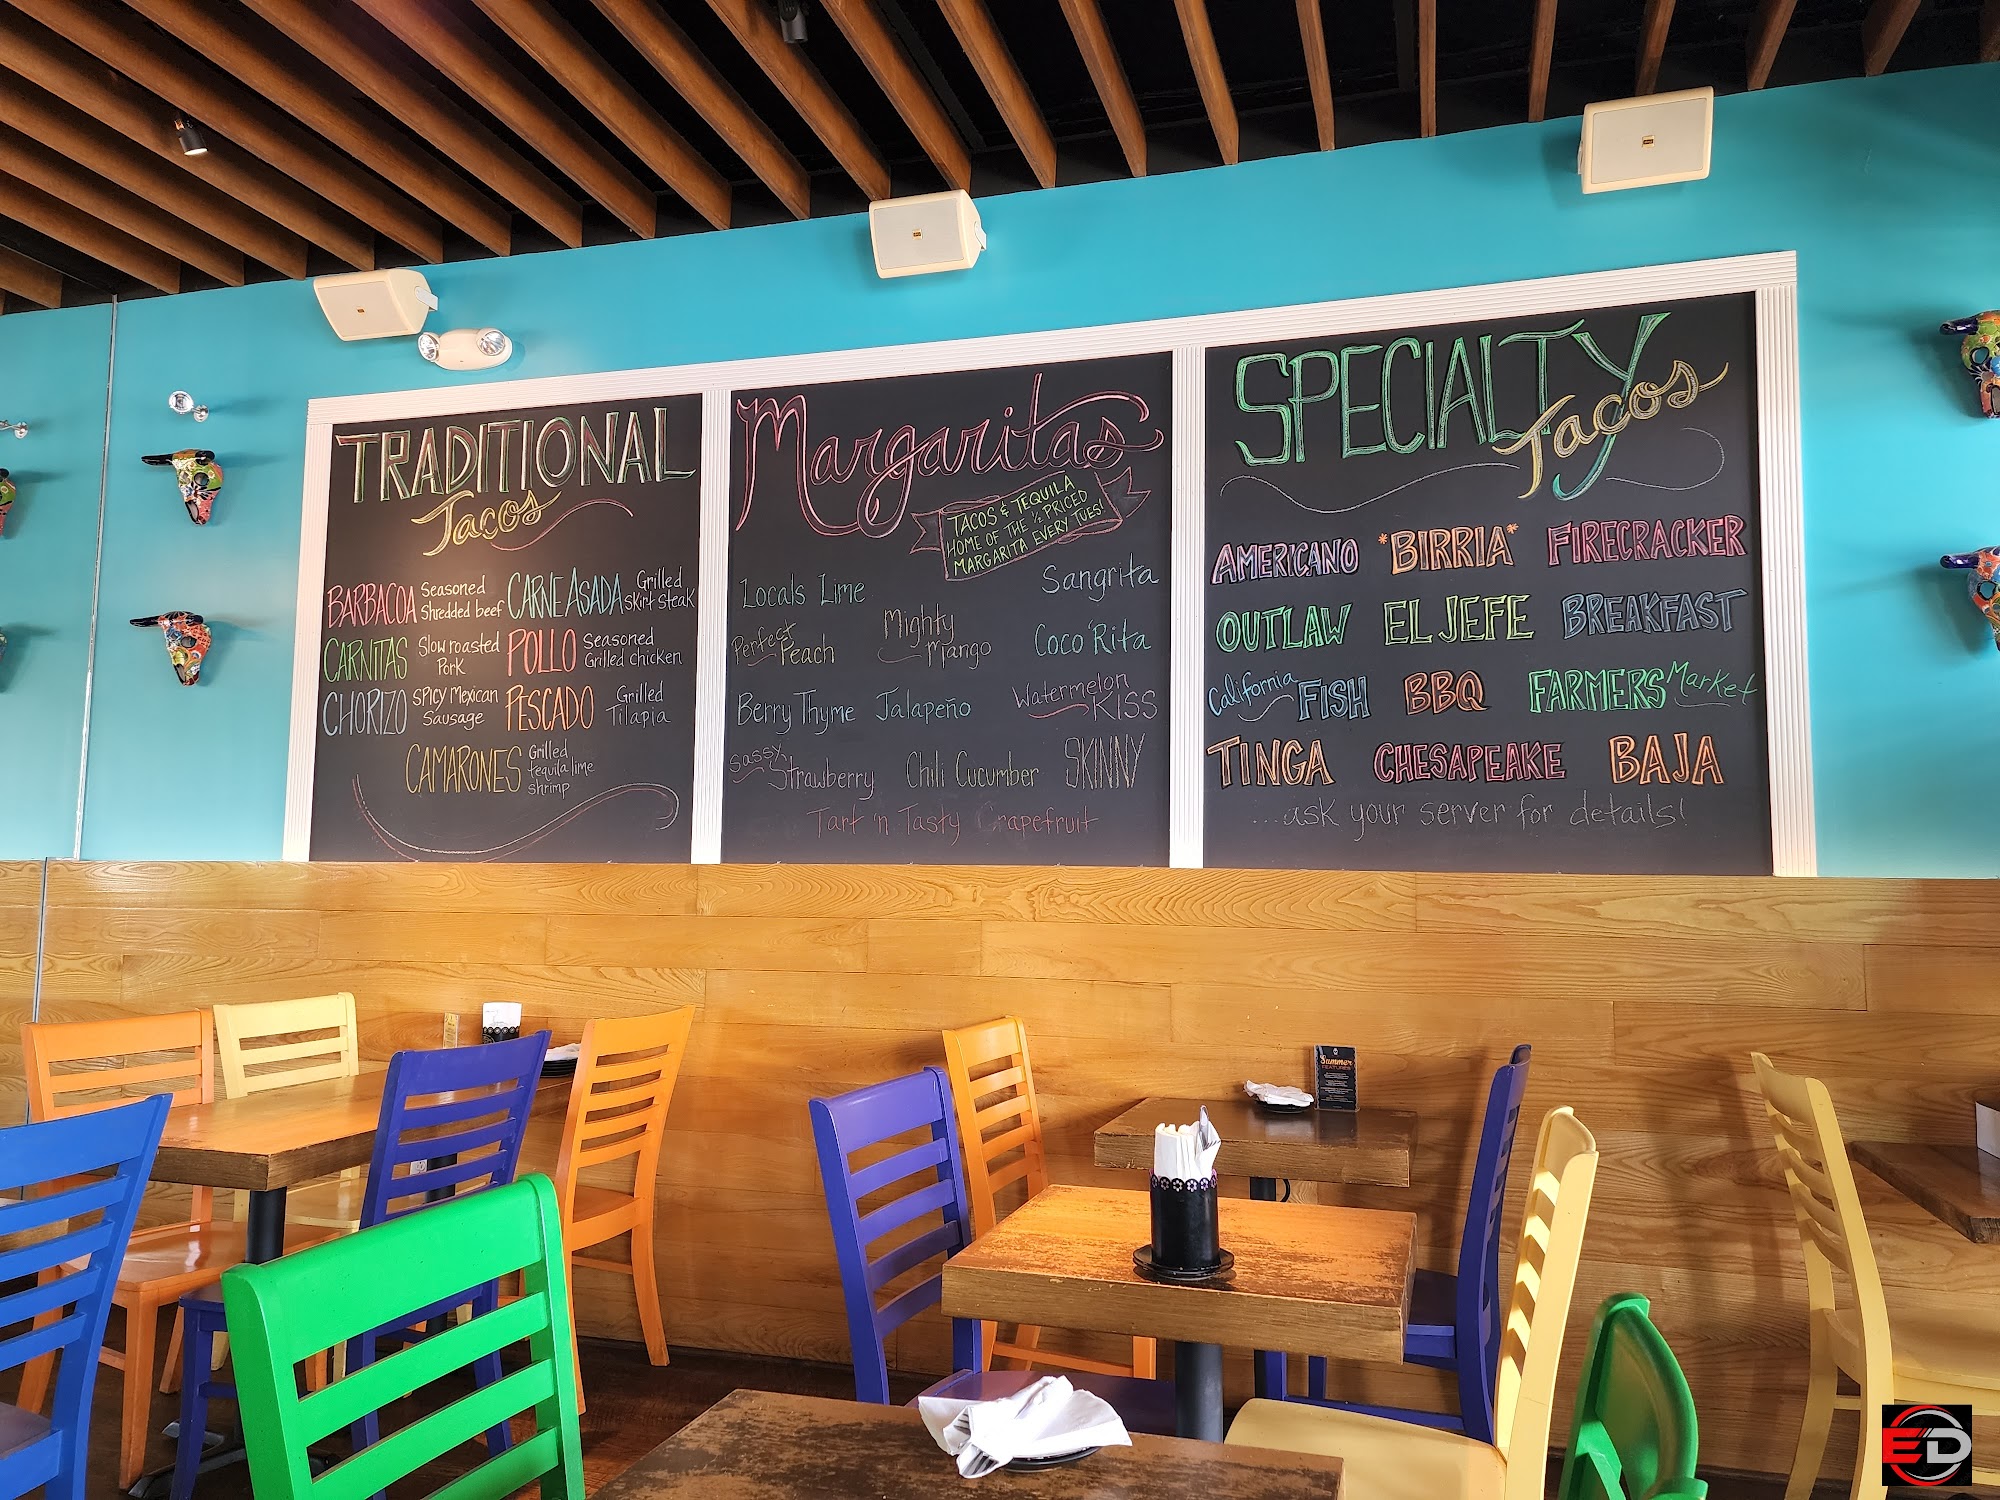 TRADITIONAL
Tacos
BARBACOA Seasoned Shredded beef CARNE ASADA Grilled Skirt steak
CARNITAS Slow roasted Pork POLLO Seasoned Grilled chicken
CHORIZO SPICY Mexican Sausage PESCADO Grilled Tilapia
CAMARONES Grilled tequila lime shrimp
Margaritas
TACOS & TEQUILA
HOME OF THE ½ PRICED
MARGARITA EVERY TUES!
Locals Lime Sangrita
Perfect Peach Mighty Mango Coco 'Rita
Berry Thyme Jalapeño Watermelon KISS
Sassy Strawberry Chili Cucumber SKINNY
Tart 'n Tasty Grapefruit
SPECIALTY
Tacos
AMERICANO *BIRRIA* FIRECRACKER
OUTLAW EL JEFE BREAKFAST
California FISH BBQ FARMERS Market
TINGA CHESAPEAKE BAJA
...ask your server for details!
Summer
FEATURES
ED